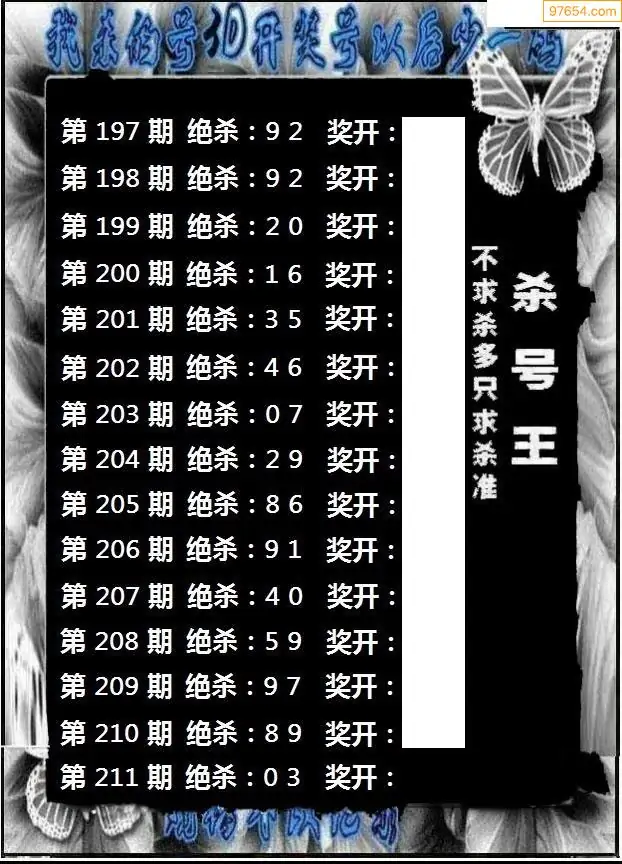 97654.com
我杀的号3D开奖号以后少一码
第 197 期 绝杀：9 2 奖开：
第 198 期 绝杀：9 2 奖开：
第 199 期 绝杀：2 0 奖开：
第 200 期 绝杀：1 6 奖开：
第 201 期 绝杀：3 5 奖开：
第 202 期 绝杀：4 6 奖开：
第 203 期 绝杀：0 7 奖开：
第 204 期 绝杀：2 9 奖开：
第 205 期 绝杀：8 6 奖开：
第 206 期 绝杀：9 1 奖开：
第 207 期 绝杀：4 0 奖开：
第 208 期 绝杀：5 9 奖开：
第 209 期 绝杀：9 7 奖开：
第 210 期 绝杀：8 9 奖开：
第 211 期 绝杀：0 3 奖开：
杀号王
不求杀多只求杀准